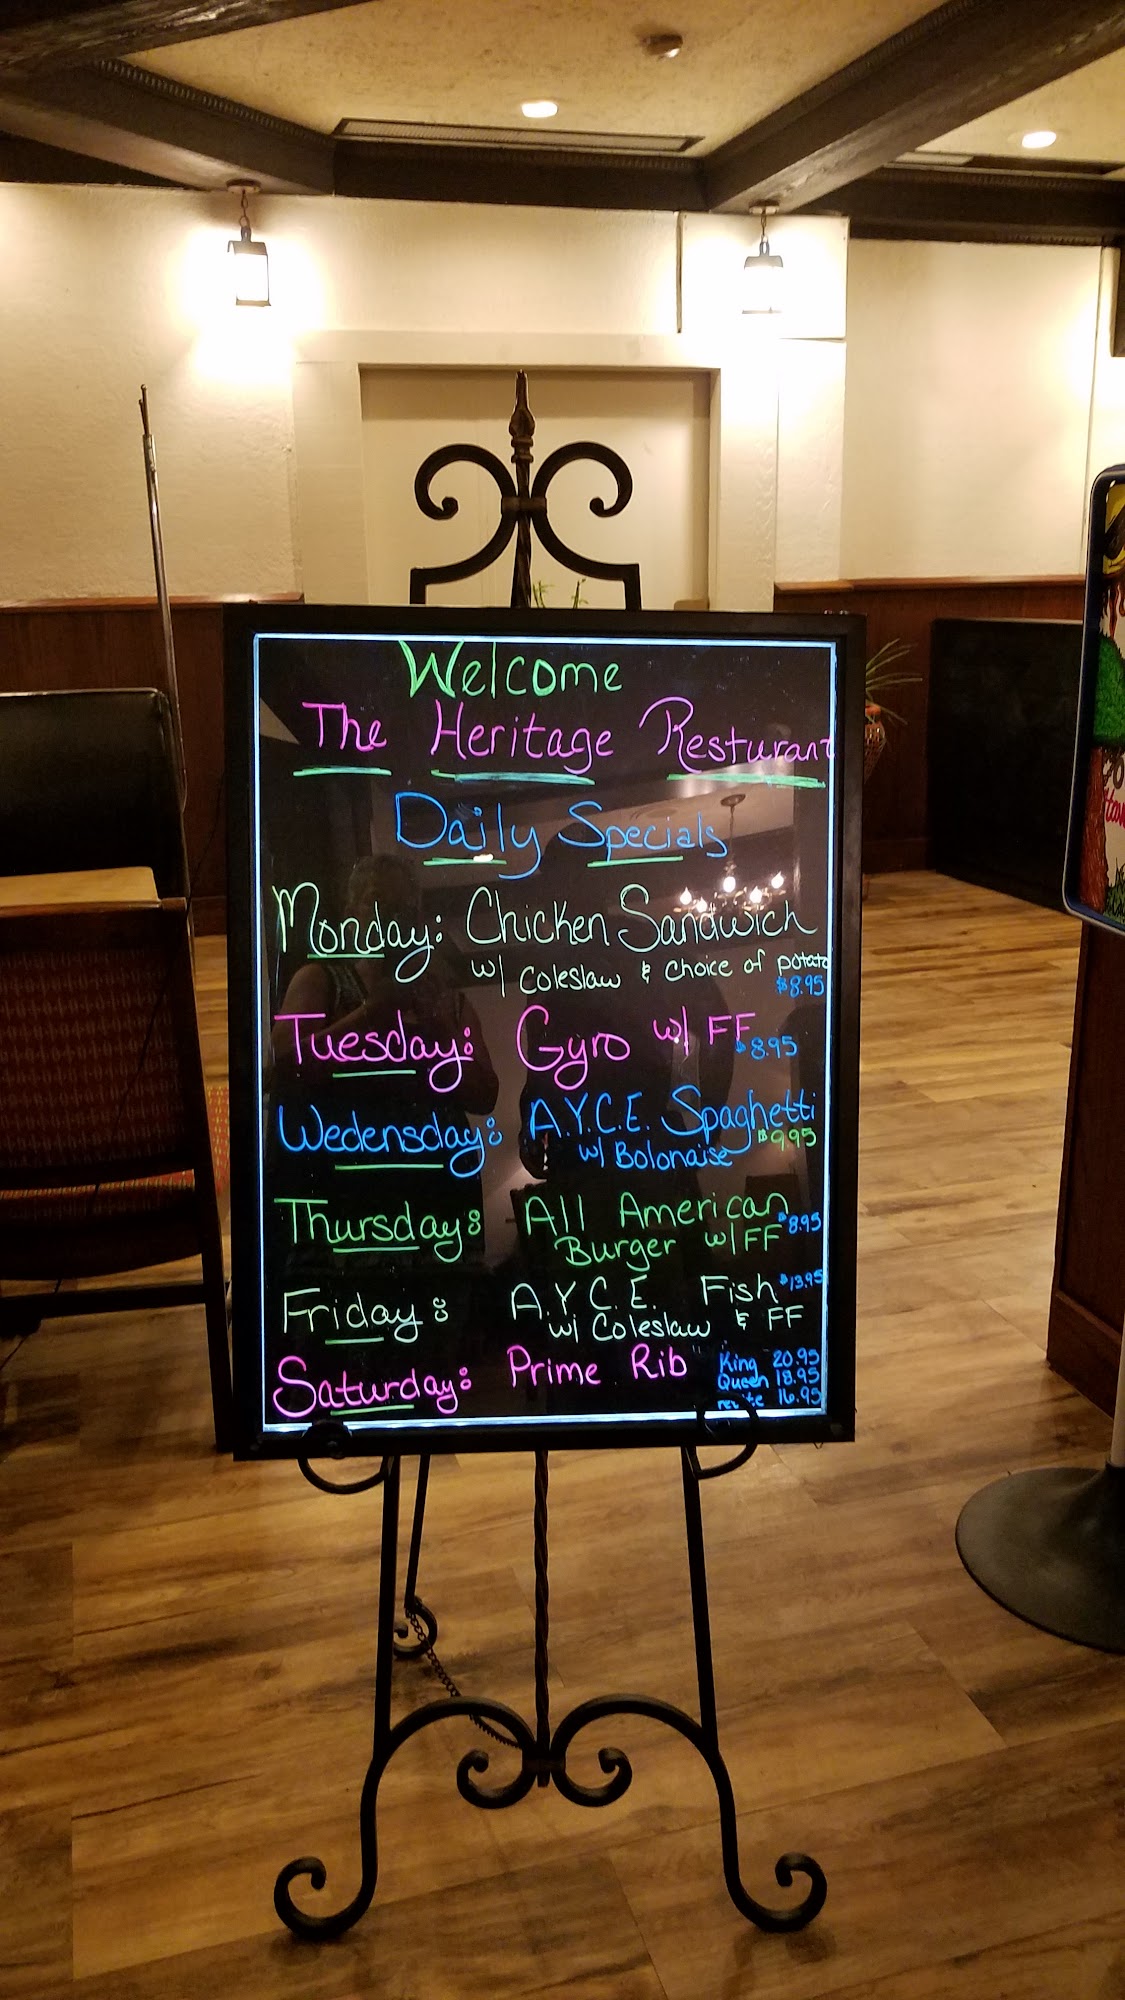 Welcome
The Heritage Resturant
Daily Specials
Monday: Chicken Sandwich
w/ Coleslaw & Choice of potato
$8.95
Tuesday: Gyro w/ FF $8.95
Wedensday: A.Y.C.E. Spaghetti
w/ Bolonaise $9.95
Thursday: All American $8.95
Burger w/ FF
Friday: A.Y.C.E. Fish $13.95
w/ Coleslaw & FF
Saturday: Prime Rib King 20.95
Queen 18.95
16.95